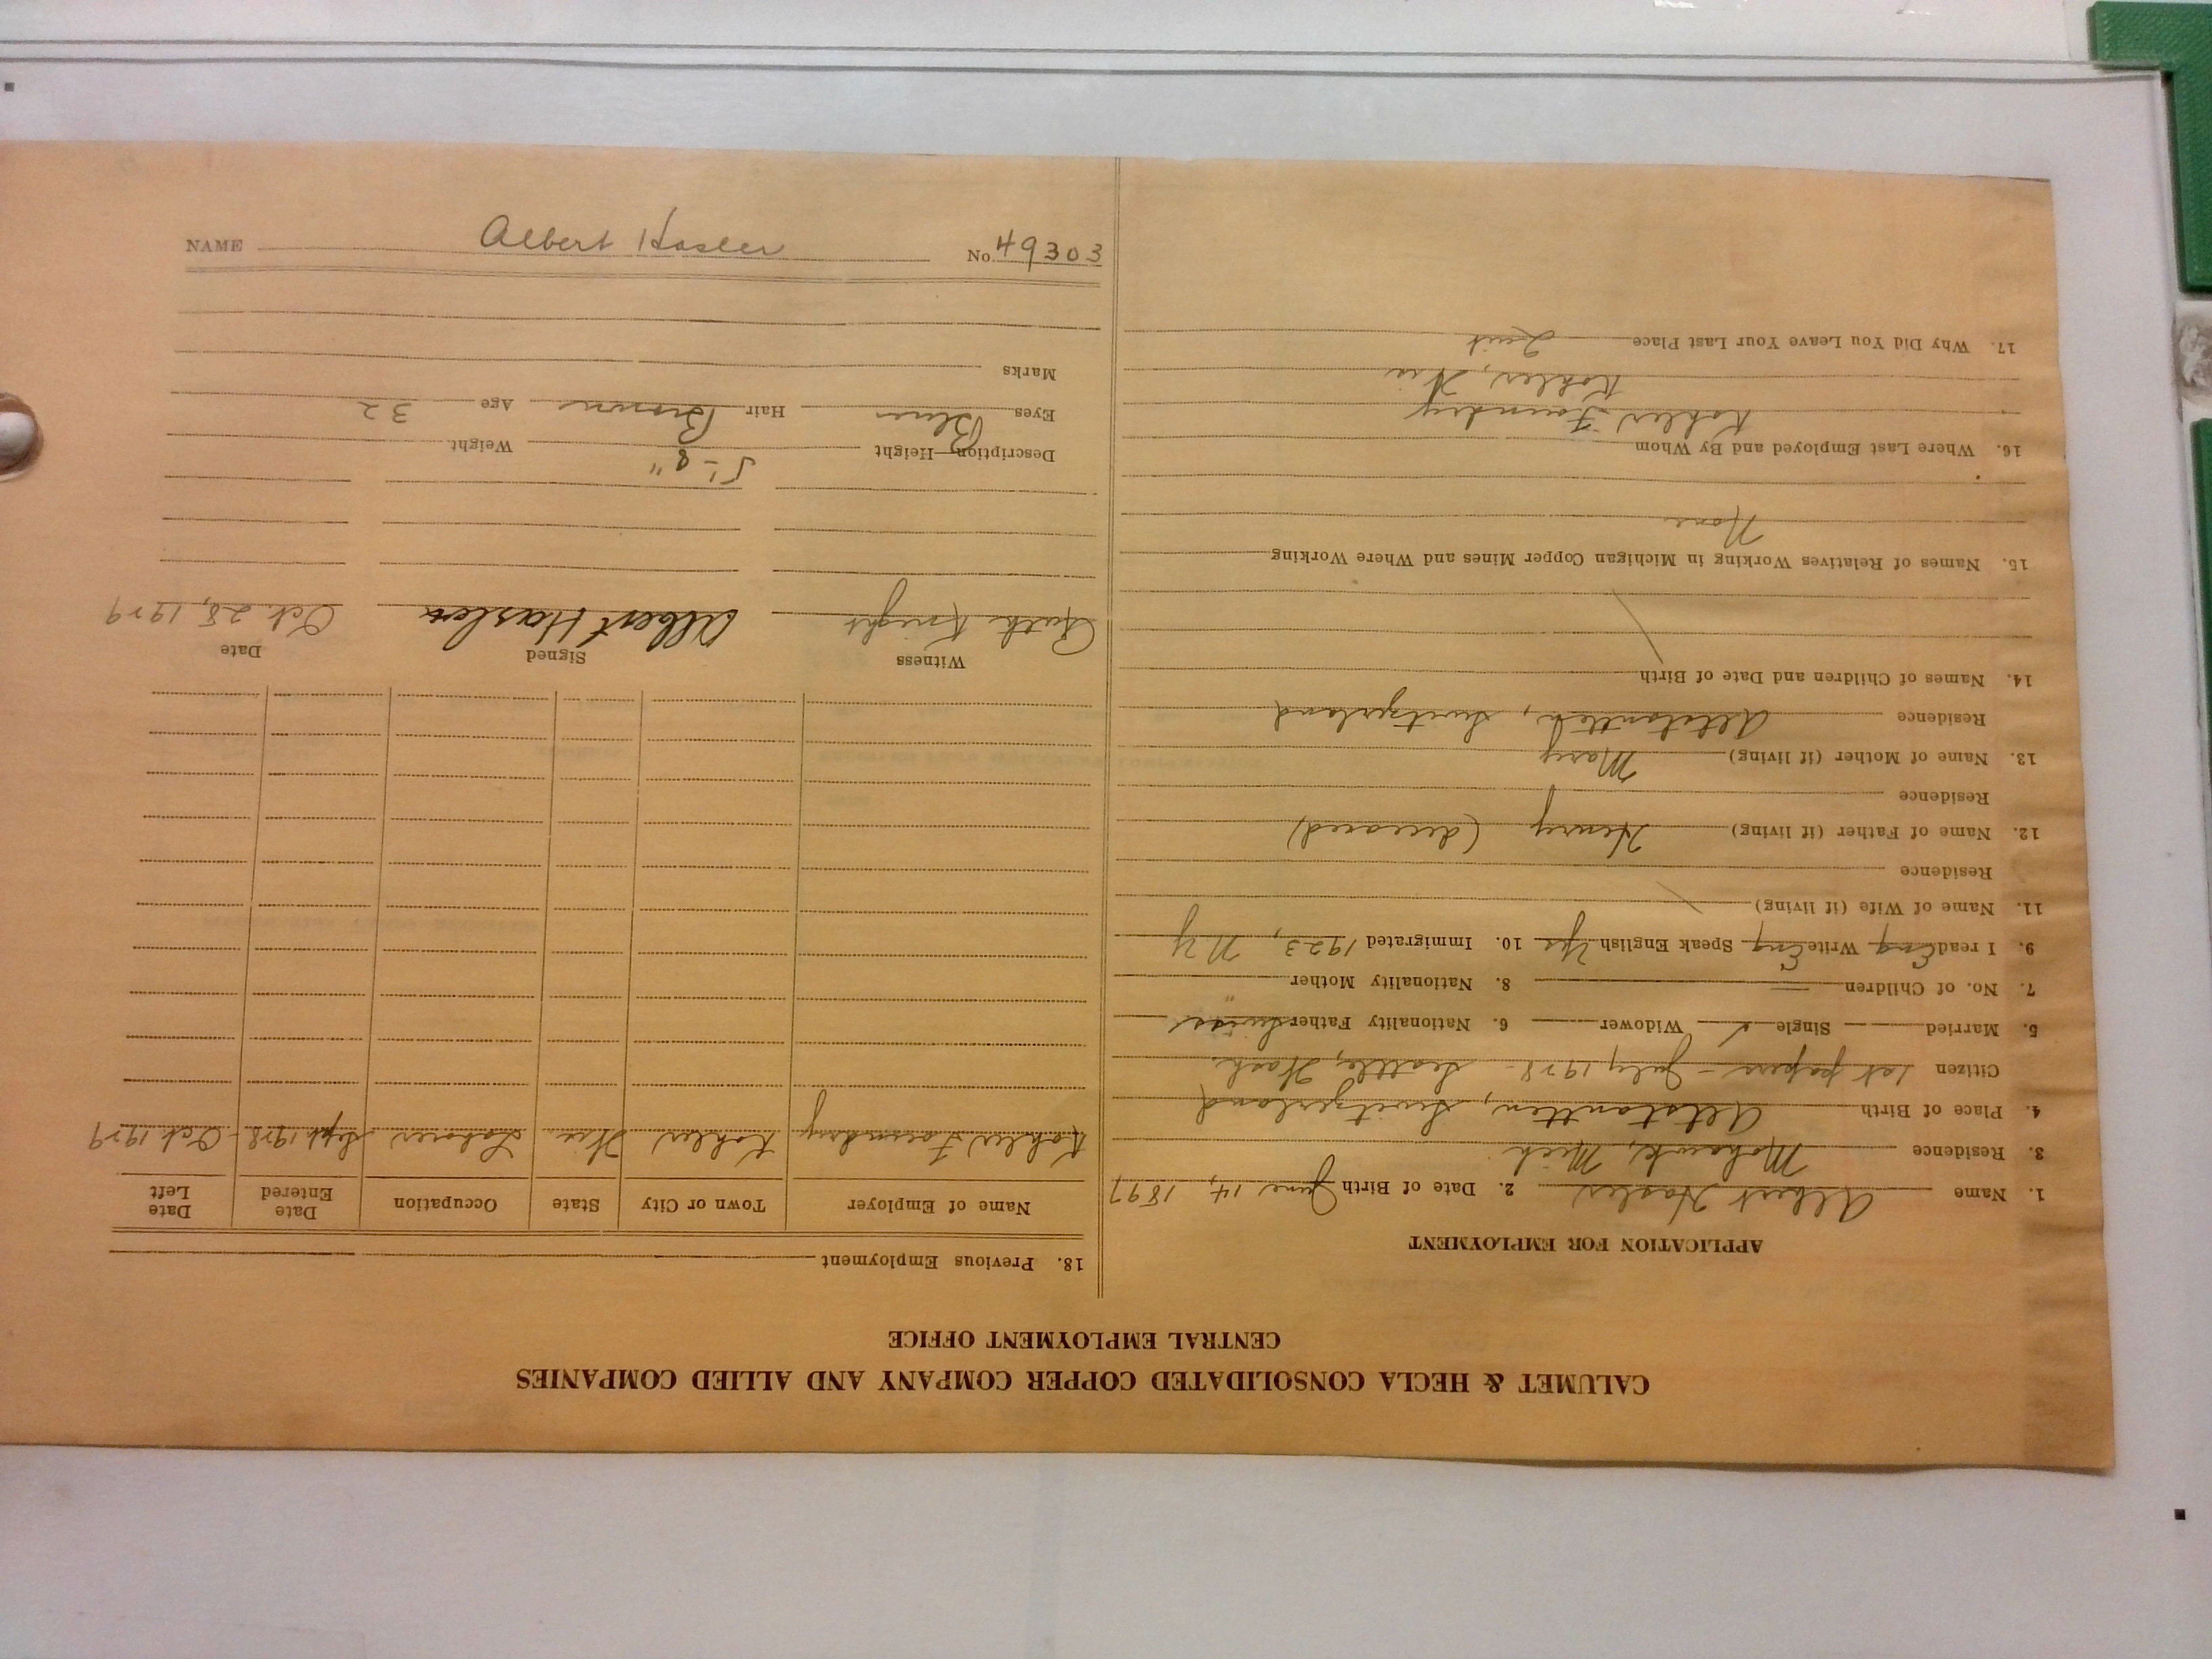 CALUMET & HECLA CONSOLIDATED COPPER COMPANY AND ALLIED COMPANIES
CENTRAL EMPLOYMENT OFFICE
APPLICATION FOR EMPLOYMENT
1. Name Albert Hasler 2. Date of Birth June 14, 1897
3. Residence Mohawk, Mich
4. Place of Birth Altstantten, Switzerland
Citizen 1st papers - July 1928 - Seattle, Wash.
5. Married Single ✓ Widower 6. Nationality Father Swiss
7. No. of Children — 8. Nationality Mother "
9. I read Eng Write Eng Speak English Yes 10. Immigrated 1923, NY
11. Name of Wife (if living)
Residence
12. Name of Father (if living) Henry (deceased)
Residence
13. Name of Mother (if living) Mary
Residence Altstantten, Switzerland
14. Names of Children and Date of Birth
15. Names of Relatives Working in Michigan Copper Mines and Where Working
None
16. Where Last Employed and By Whom
Kohler Foundry
Kohler, Wis
17. Why Did You Leave Your Last Place Quit
18. Previous Employment
Name of Employer Town or City State Occupation Date Entered Date Left
Kohler Foundry Kohler Wis Laborer Sept. 1928 - Oct. 1929
Witness Signed Date
Ruth Knight Albert Hasler Oct. 28, 1929
Description—Height 5'-8" Weight
Eyes Blue Hair Brown Age 32
Marks
NAME Albert Hasler No. 49303